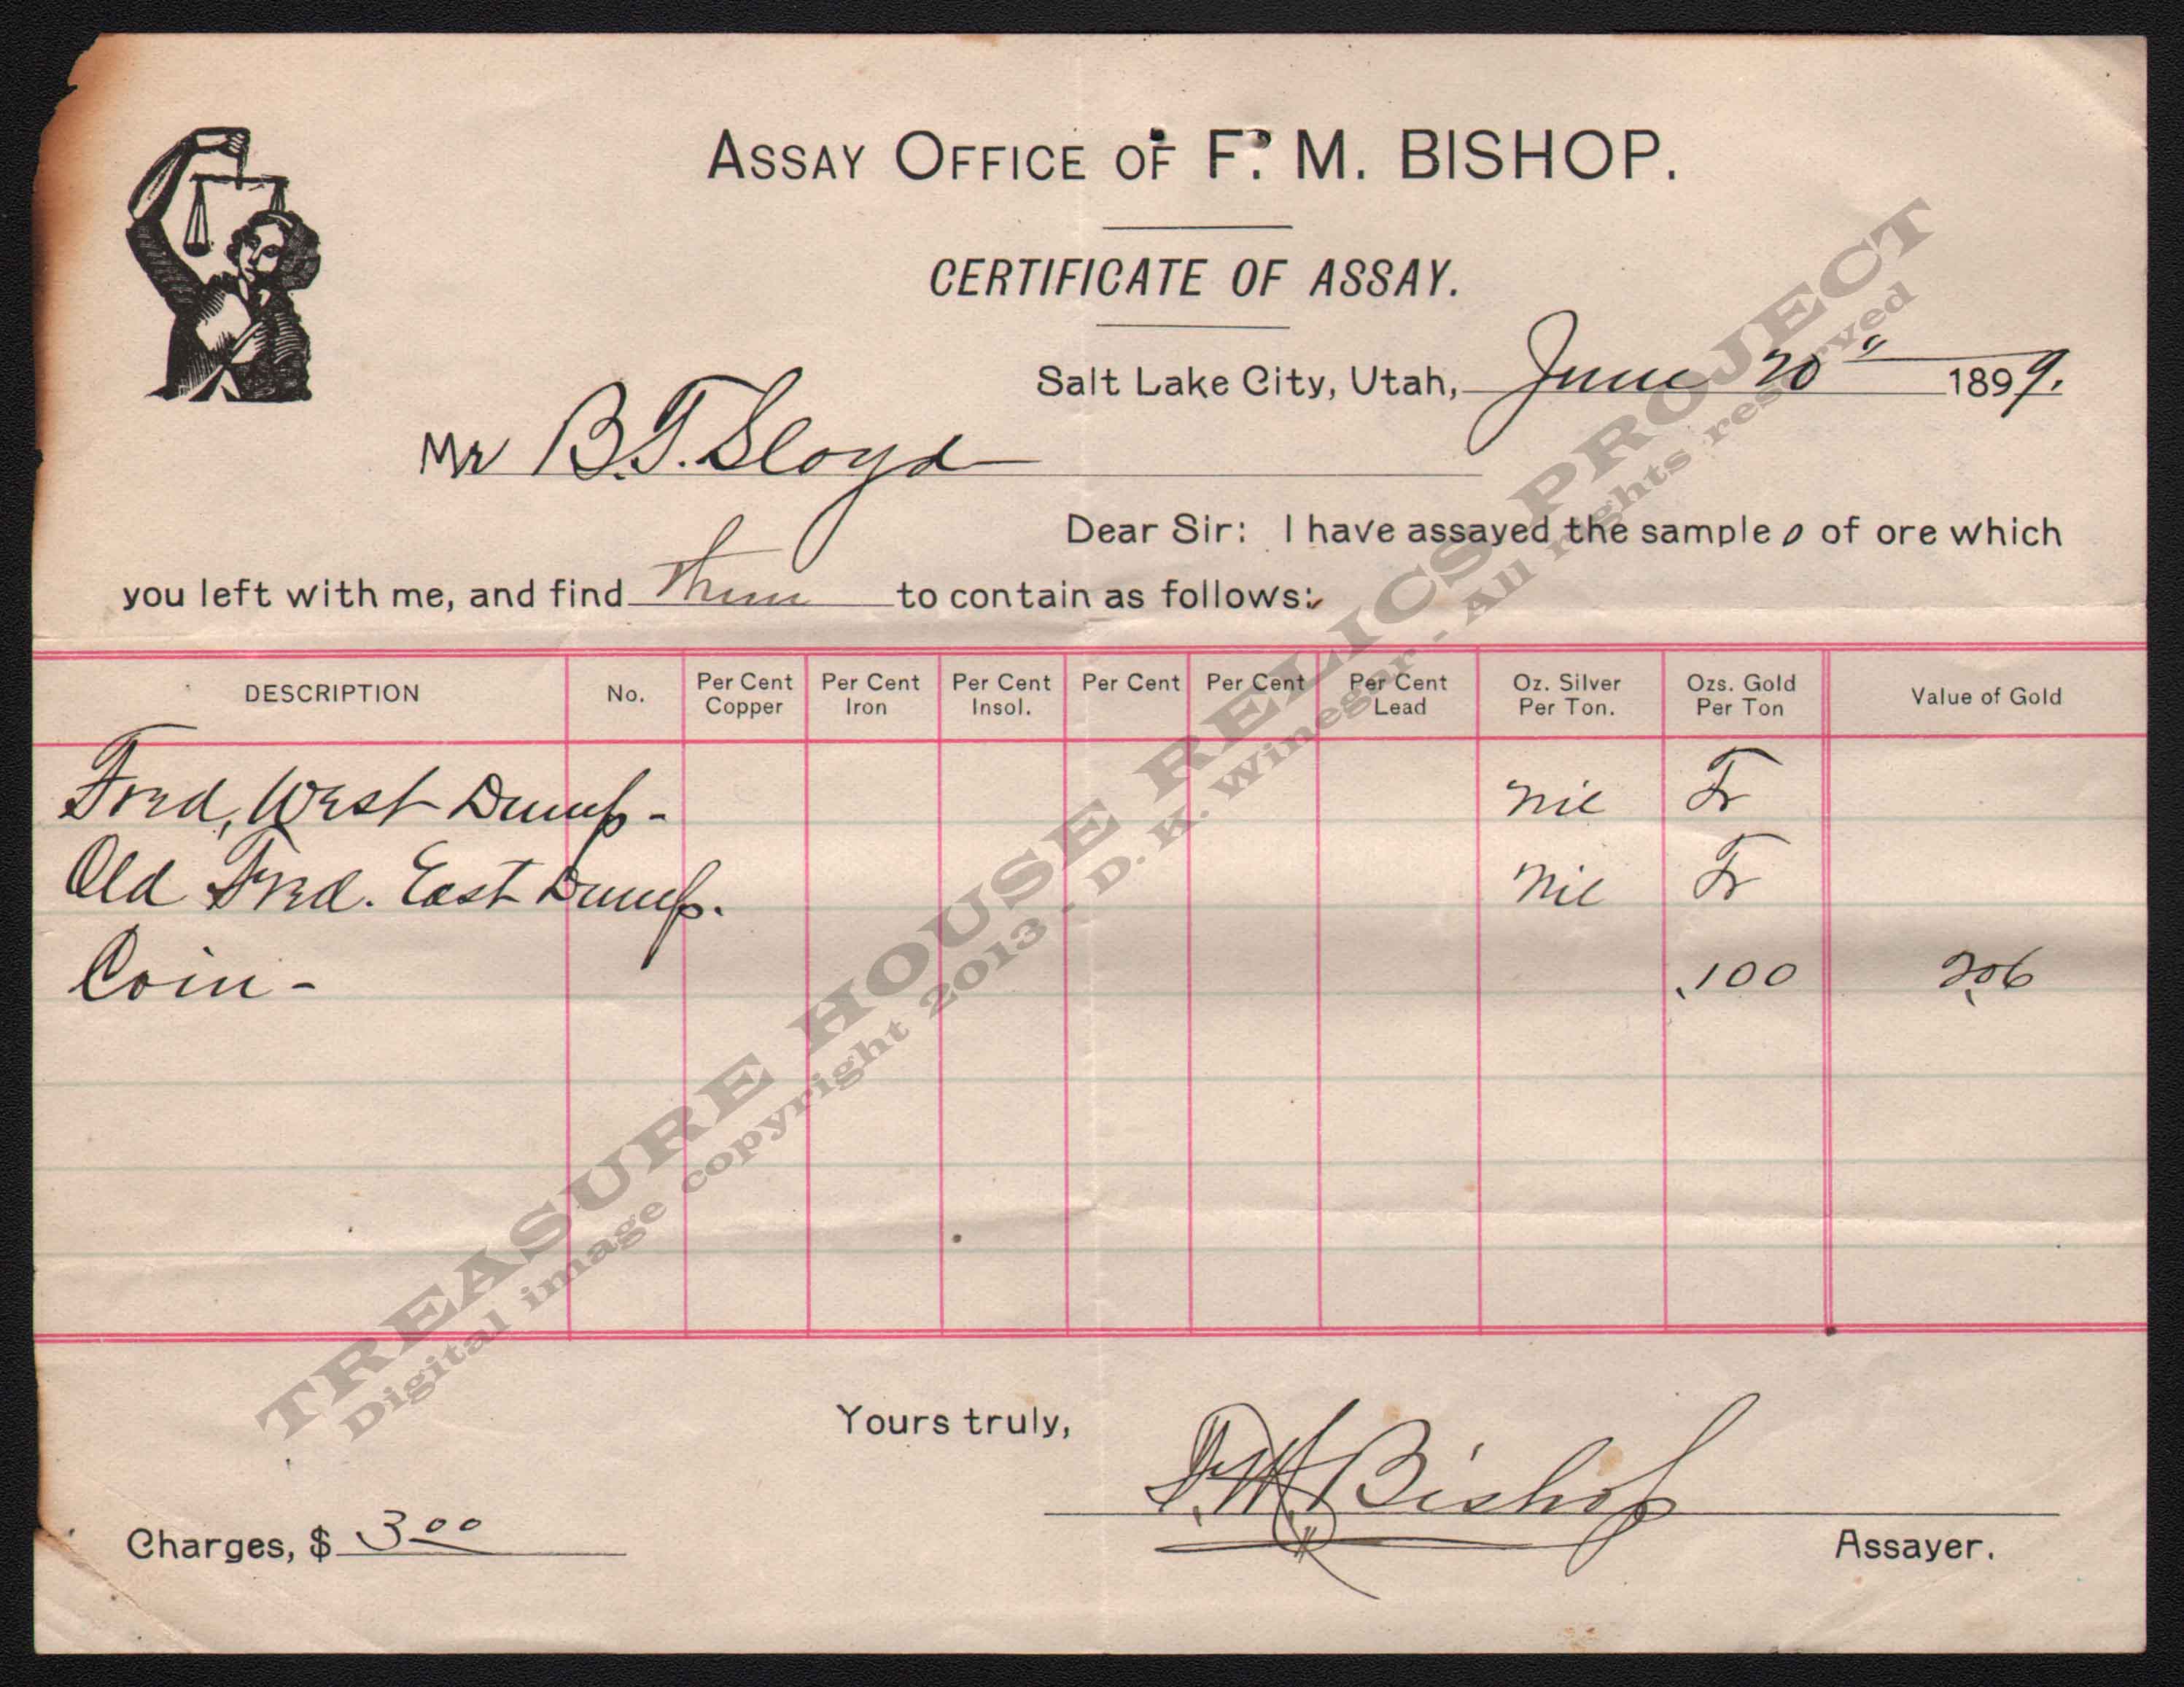 ASSAY OFFICE OF F. M. BISHOP.
CERTIFICATE OF ASSAY.
Salt Lake City, Utah, June 20" 1899.
Mr B.T. Lloyd
Dear Sir: I have assayed the samples of ore which
you left with me, and find them to contain as follows:
DESCRIPTION No. Per Cent Copper Per Cent Iron Per Cent Insol. Per Cent Per Cent Per Cent Lead Oz. Silver Per Ton. Ozs. Gold Per Ton Value of Gold
Fred, West Dump- nil Tr
Old Fred. East Dump. nil Tr
Coin- .100 2.06
Yours truly,
F.M. Bishop
Charges, $ 3.00 Assayer.
TREASURE HOUSE RELICS PROJECT
Digital image copyright 2013 - D. K. Winegar - All rights reserved